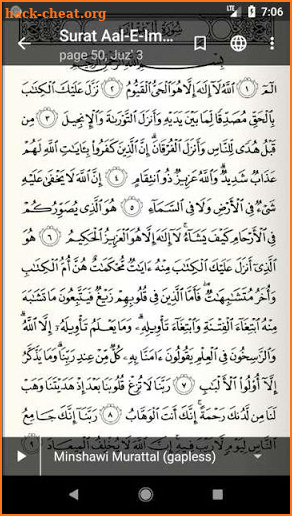 hack-cheat.org
7:06
Surat Aal-E-Im...
page 50, Juz' 3
الٓمٓ ١ ٱللَّهُ لَآ إِلَٰهَ إِلَّا هُوَ ٱلْحَىُّ ٱلْقَيُّومُ ٢ نَزَّلَ عَلَيْكَ ٱلْكِتَٰبَ
بِٱلْحَقِّ مُصَدِّقًا لِّمَا بَيْنَ يَدَيْهِ وَأَنزَلَ ٱلتَّوْرَىٰةَ وَٱلْإِنجِيلَ ٣ مِن
قَبْلُ هُدًى لِّلنَّاسِ وَأَنزَلَ ٱلْفُرْقَانَ ۗ إِنَّ ٱلَّذِينَ كَفَرُوا۟ بِـَٔايَٰتِ ٱللَّهِ لَهُمْ
عَذَابٌ شَدِيدٌ ۗ وَٱللَّهُ عَزِيزٌ ذُو ٱنتِقَامٍ ٤ إِنَّ ٱللَّهَ لَا يَخْفَىٰ عَلَيْهِ
شَىْءٌ فِى ٱلْأَرْضِ وَلَا فِى ٱلسَّمَآءِ ٥ هُوَ ٱلَّذِى يُصَوِّرُكُمْ
فِى ٱلْأَرْحَامِ كَيْفَ يَشَآءُ ۚ لَآ إِلَٰهَ إِلَّا هُوَ ٱلْعَزِيزُ ٱلْحَكِيمُ ٦ هُوَ
ٱلَّذِىٓ أَنزَلَ عَلَيْكَ ٱلْكِتَٰبَ مِنْهُ ءَايَٰتٌ مُّحْكَمَٰتٌ هُنَّ أُمُّ ٱلْكِتَٰبِ
وَأُخَرُ مُتَشَٰبِهَٰتٌ ۖ فَأَمَّا ٱلَّذِينَ فِى قُلُوبِهِمْ زَيْغٌ فَيَتَّبِعُونَ مَا تَشَٰبَهَ
مِنْهُ ٱبْتِغَآءَ ٱلْفِتْنَةِ وَٱبْتِغَآءَ تَأْوِيلِهِۦ ۗ وَمَا يَعْلَمُ تَأْوِيلَهُۥٓ إِلَّا ٱللَّهُ ۗ
وَٱلرَّٰسِخُونَ فِى ٱلْعِلْمِ يَقُولُونَ ءَامَنَّا بِهِۦ كُلٌّ مِّنْ عِندِ رَبِّنَا ۗ وَمَا يَذَّكَّرُ
إِلَّآ أُو۟لُوا۟ ٱلْأَلْبَٰبِ ٧ رَبَّنَا لَا تُزِغْ قُلُوبَنَا بَعْدَ إِذْ هَدَيْتَنَا وَهَبْ
لَنَا مِن لَّدُنكَ رَحْمَةً ۚ إِنَّكَ أَنتَ ٱلْوَهَّابُ ٨ رَبَّنَآ إِنَّكَ جَامِعُ
ٱلنَّاسِ لِيَوْمٍ لَّا رَيْبَ فِيهِ ۚ إِنَّ ٱللَّهَ لَا يُخْلِفُ ٱلْمِيعَادَ ٩
Minshawi Murattal (gapless)
hack-cheat.org